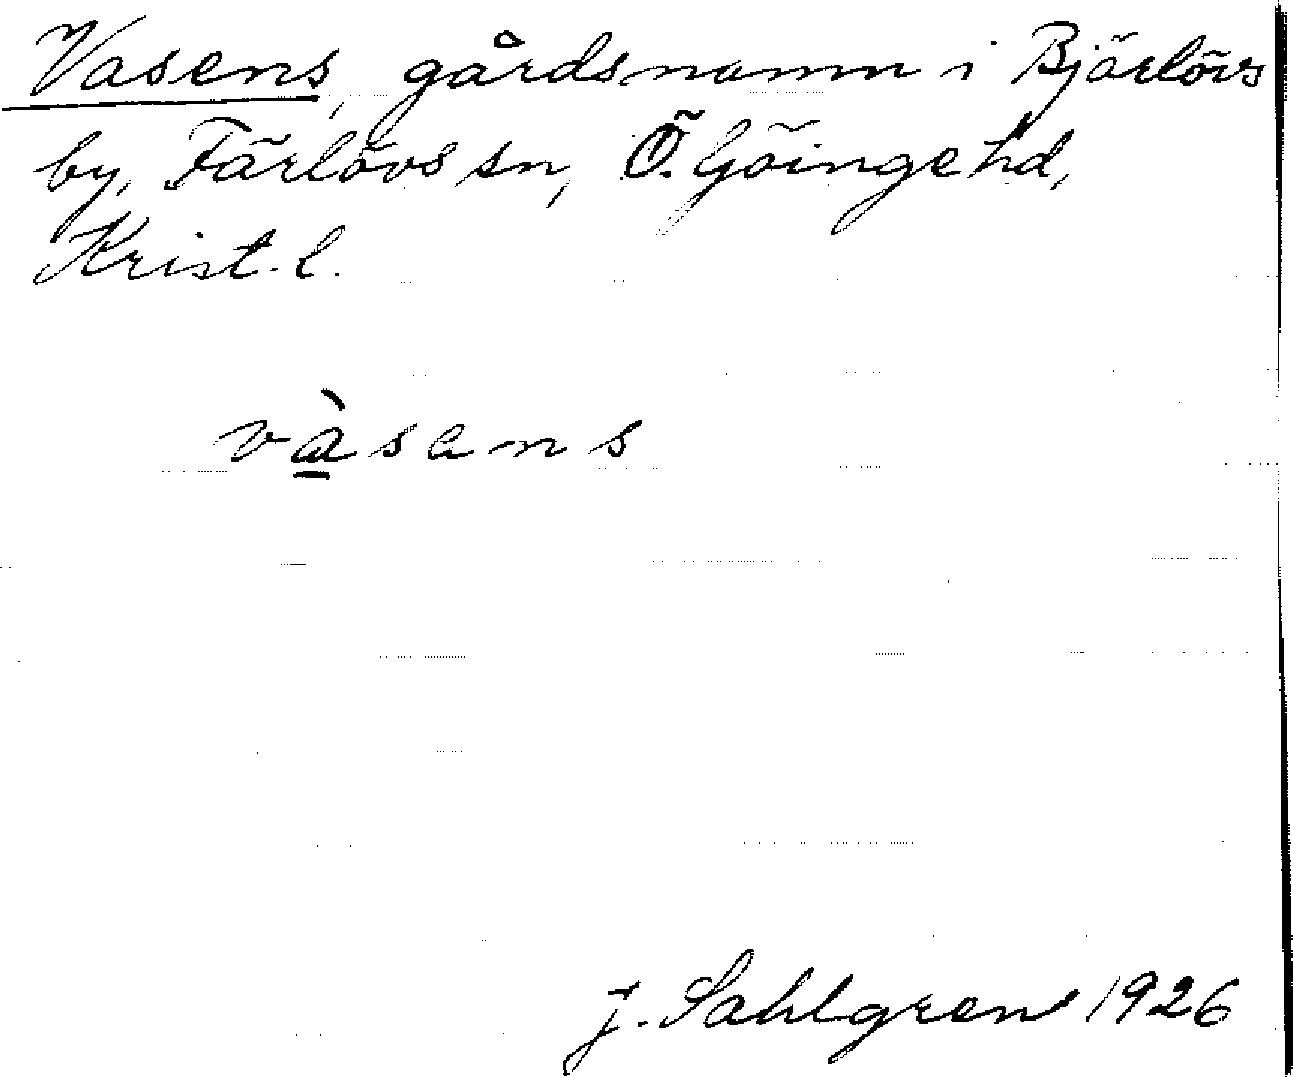 Vasens, gårdsnamn i Bjärlövs
by, Färlövs sn, Ö. Göinge hd,
Krist. l.
và̲sans
J. Sahlgren 1926